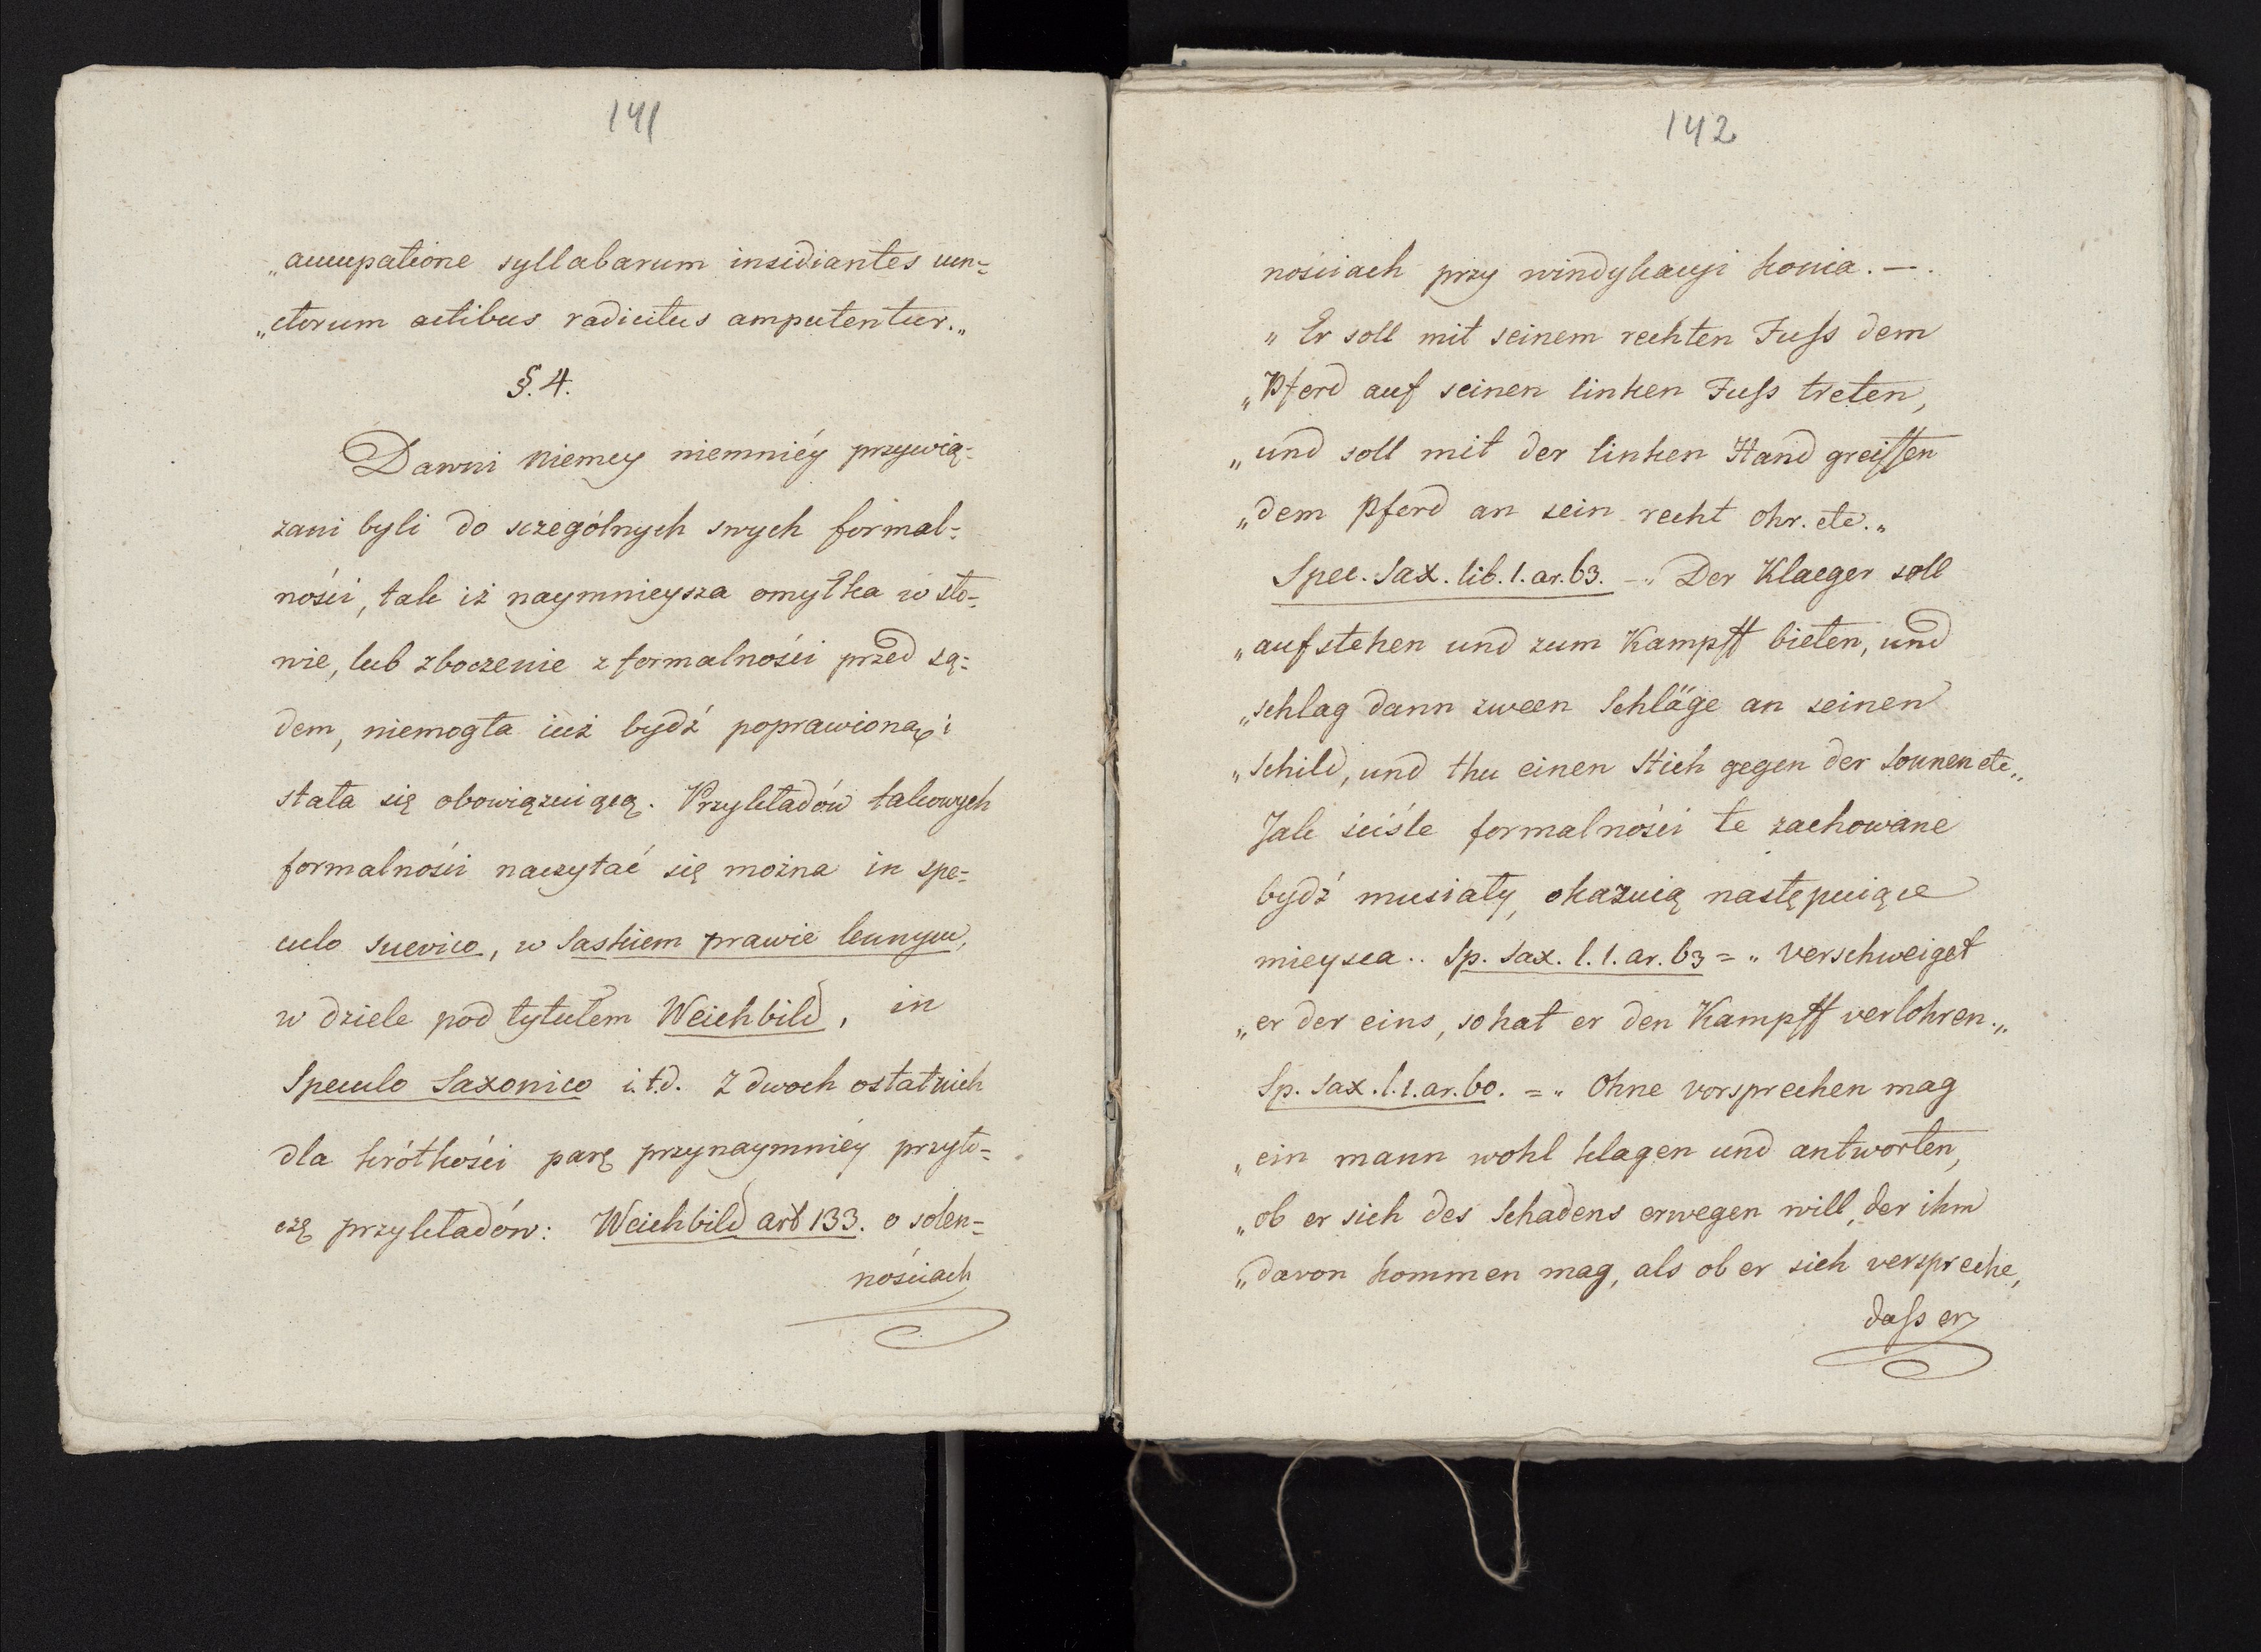 141
„aucupatione syllabarum insidiantes cun=
„ctorum actibus radicitus amputentur.„
§. 4.
Dawni Niemcy niemniéy przywią=
zani byli do sczególnych swych formal=
ności, tak iż naymnieysza omyłka w sło=
wie, lub zboczenie z formalności przed są=
dem, niemogła iuż bydź poprawioną i
stała się obowiązuiącą. Przykładów takowych
formalności naczytać się można in spe=
culo suevico, w Saskiem prawie lennym,
w dziele pod tytułem Weichbild, in
Speculo Saxonico i.t.d. Z dwoch ostatnich
dla krótkości parę przynaymniéy przyto=
czę przykładów: Weichbild art 133. o solen=
nościach
142
nościach przy windykacyi konia. —.
„ Er soll mit seinem rechten Fuſs dem
„Pferd auf seinen linken Fuſs treten,
„und soll mit der linken Hand greiffen
„dem Pferd an sein recht Ohr. etc.„
Spec. Sax. lib. 1. ar. 63. — „ Der Klaeger soll
„aufstehen und zum Kampff bieten, und
„schlag dann zween Schläge an seinen
„Schild, und thu einen Stich gegen der Sonnen etc„
Jak ściśle formalności te zachowane
bydź musiały, okazuią następuiące
mieysca.. Sp. Sax. l. 1. ar. 63 = „ Verschweiget
„er der eins, so hat er den Kampff verlohren.„
Sp. Sax. l. 1. ar. 60. = „ Ohne Vorsprechen mag
„ein mann wohl klagen und antworten,
„ob er sich des Schadens erwegen will, der ihm
„davon kommen mag, als ob er sich verspreche,
daſs er